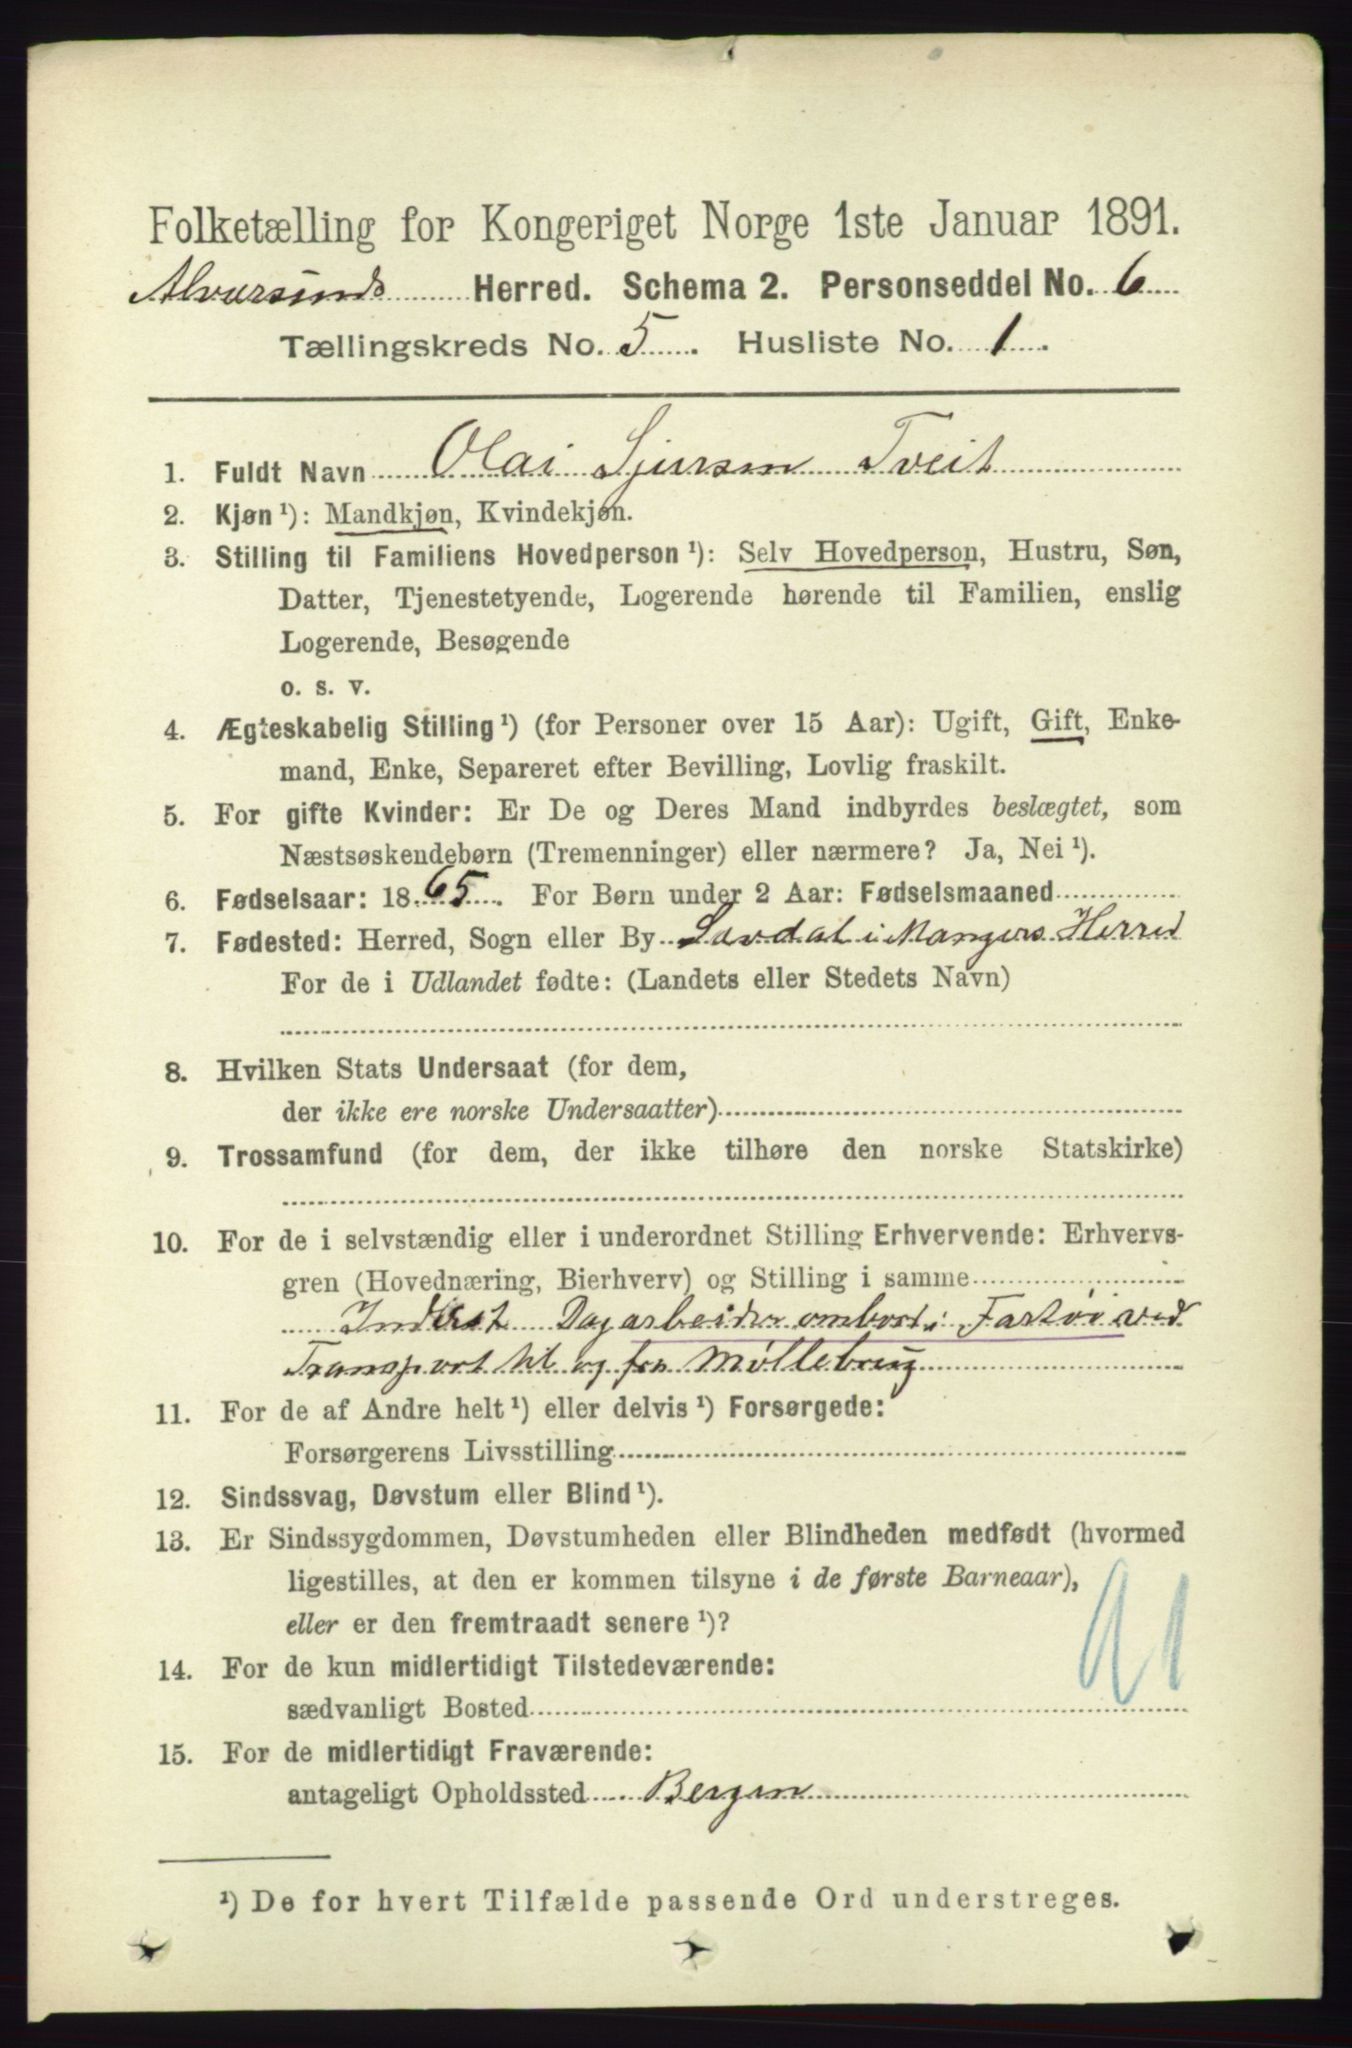 Folketælling for Kongeriget Norge 1ste Januar 1891.
Alversunds Herred. Schema 2. Personseddel No. 6
Tællingskreds No. 5. Husliste No. 1.
1. Fuldt Navn Olai Sjursen Tveit
2. Kjøn ¹): Mandkjøn, Kvindekjøn.
3. Stilling til Familiens Hovedperson ¹): Selv Hovedperson, Hustru, Søn,
Datter, Tjenestetyende, Logerende hørende til Familien, enslig
Logerende, Besøgende
o. s. v.
4. Ægteskabelig Stilling ¹) (for Personer over 15 Aar): Ugift, Gift, Enke-
mand, Enke, Separeret efter Bevilling, Lovlig fraskilt.
5. For gifte Kvinder: Er De og Deres Mand indbyrdes beslægtet, som
Næstsøskendebørn (Tremenninger) eller nærmere? Ja, Nei ¹).
6. Fødselsaar: 1865. For Børn under 2 Aar: Fødselsmaaned
7. Fødested: Herred, Sogn eller By i Mangers Herred
For de i Udlandet fødte: (Landets eller Stedets Navn)
8. Hvilken Stats Undersaat (for dem,
der ikke ere norske Undersaatter)
9. Trossamfund (for dem, der ikke tilhøre den norske Statskirke)
10. For de i selvstændig eller i underordnet Stilling Erhvervende: Erhvervs-
gren (Hovednæring, Bierhverv) og Stilling i samme
Inderst Dagarbeider ombord i Fartøi ved
Transport til og fra Møllebrug
11. For de af Andre helt ¹) eller delvis ¹) Forsørgede:
Forsørgerens Livsstilling
12. Sindssvag, Døvstum eller Blind ¹).
13. Er Sindssygdommen, Døvstumheden eller Blindheden medfødt (hvormed
ligestilles, at den er kommen tilsyne i de første Barneaar),
eller er den fremtraadt senere ¹)?
14. For de kun midlertidigt Tilstedeværende:
sædvanligt Bosted
15. For de midlertidigt Fraværende:
antageligt Opholdssted Bergen
¹) De for hvert Tilfælde passende Ord understreges.